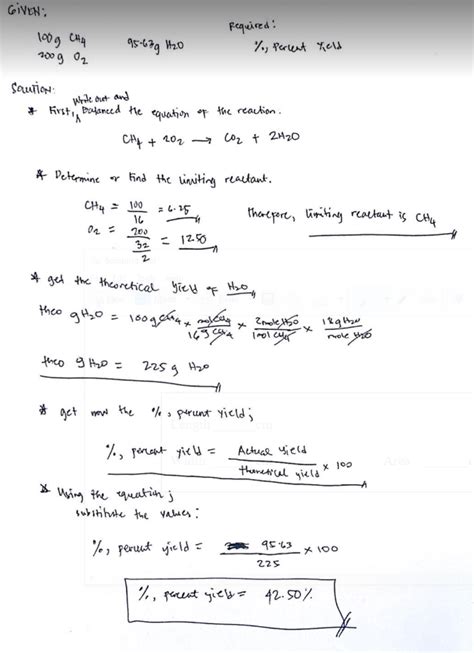 GIVEN:
Required:
100g CH4
95.63g H2O
%, Percent Yield
200g O2
Solution:
* First, write out and Balanced the equation of the reaction.
CH4 + 2O2 → CO2 + 2H2O
* Determine or Find the limiting reactant.
CH4 = 100/16 = 6.25
therefore, limiting reactant is CH4
O2 = 200/32/2 = 12.50
* get the theoretical Yield of H2O
theo gH2O = 100gCH4 × molCH4/16gCH4 × 2moleH2O/1molCH4 × 18gH2O/moleH2O
theo gH2O = 225g H2O
* get now the %, percent yield;
%, percent yield = Actual yield/theoretical yield × 100
* Using the equation;
substitute the values:
%, percent yield = 95.63/225 × 100
%, percent yield = 42.50%